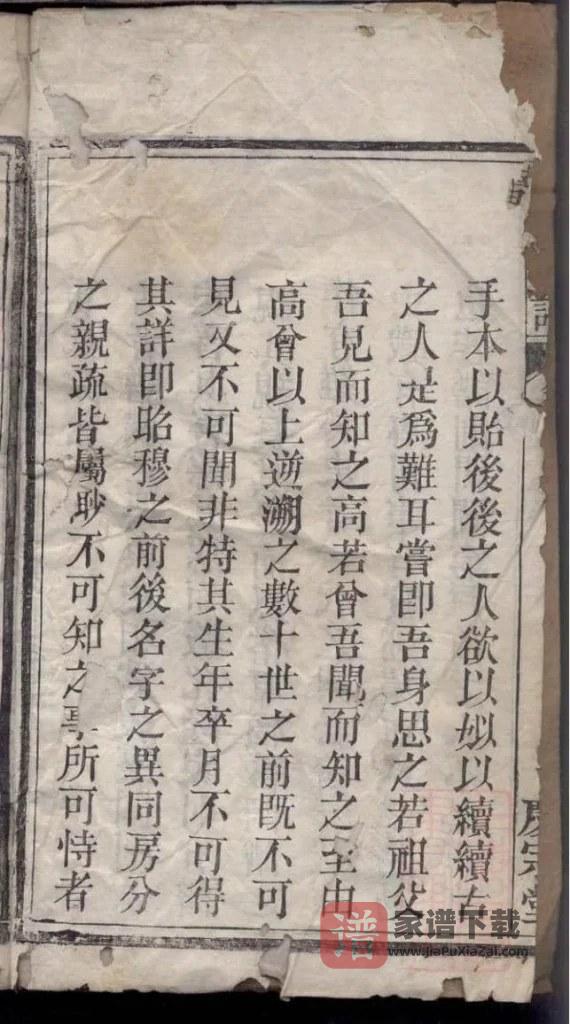 手本以貽後後之人欲以姒以續續古
之人是爲難耳嘗卽吾身思之若祖父
吾見而知之高若曾吾聞而知之至由
高曾以上逆溯之數十世之前旣不可
見又不可聞非特其生年卒月不可得
其詳卽昭穆之前後名字之異同房分
之親疏皆屬眇不可知之事所可恃者
譜
宗堂
谱 家谱下载
www.jiaPuXiaZai.com